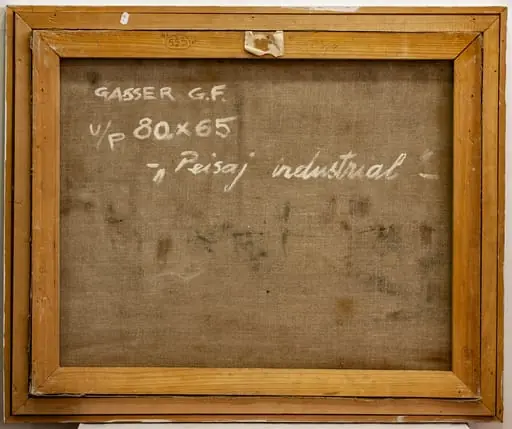 GASSER G.F.
u/p 80x65
- „Peisaj industrial" -